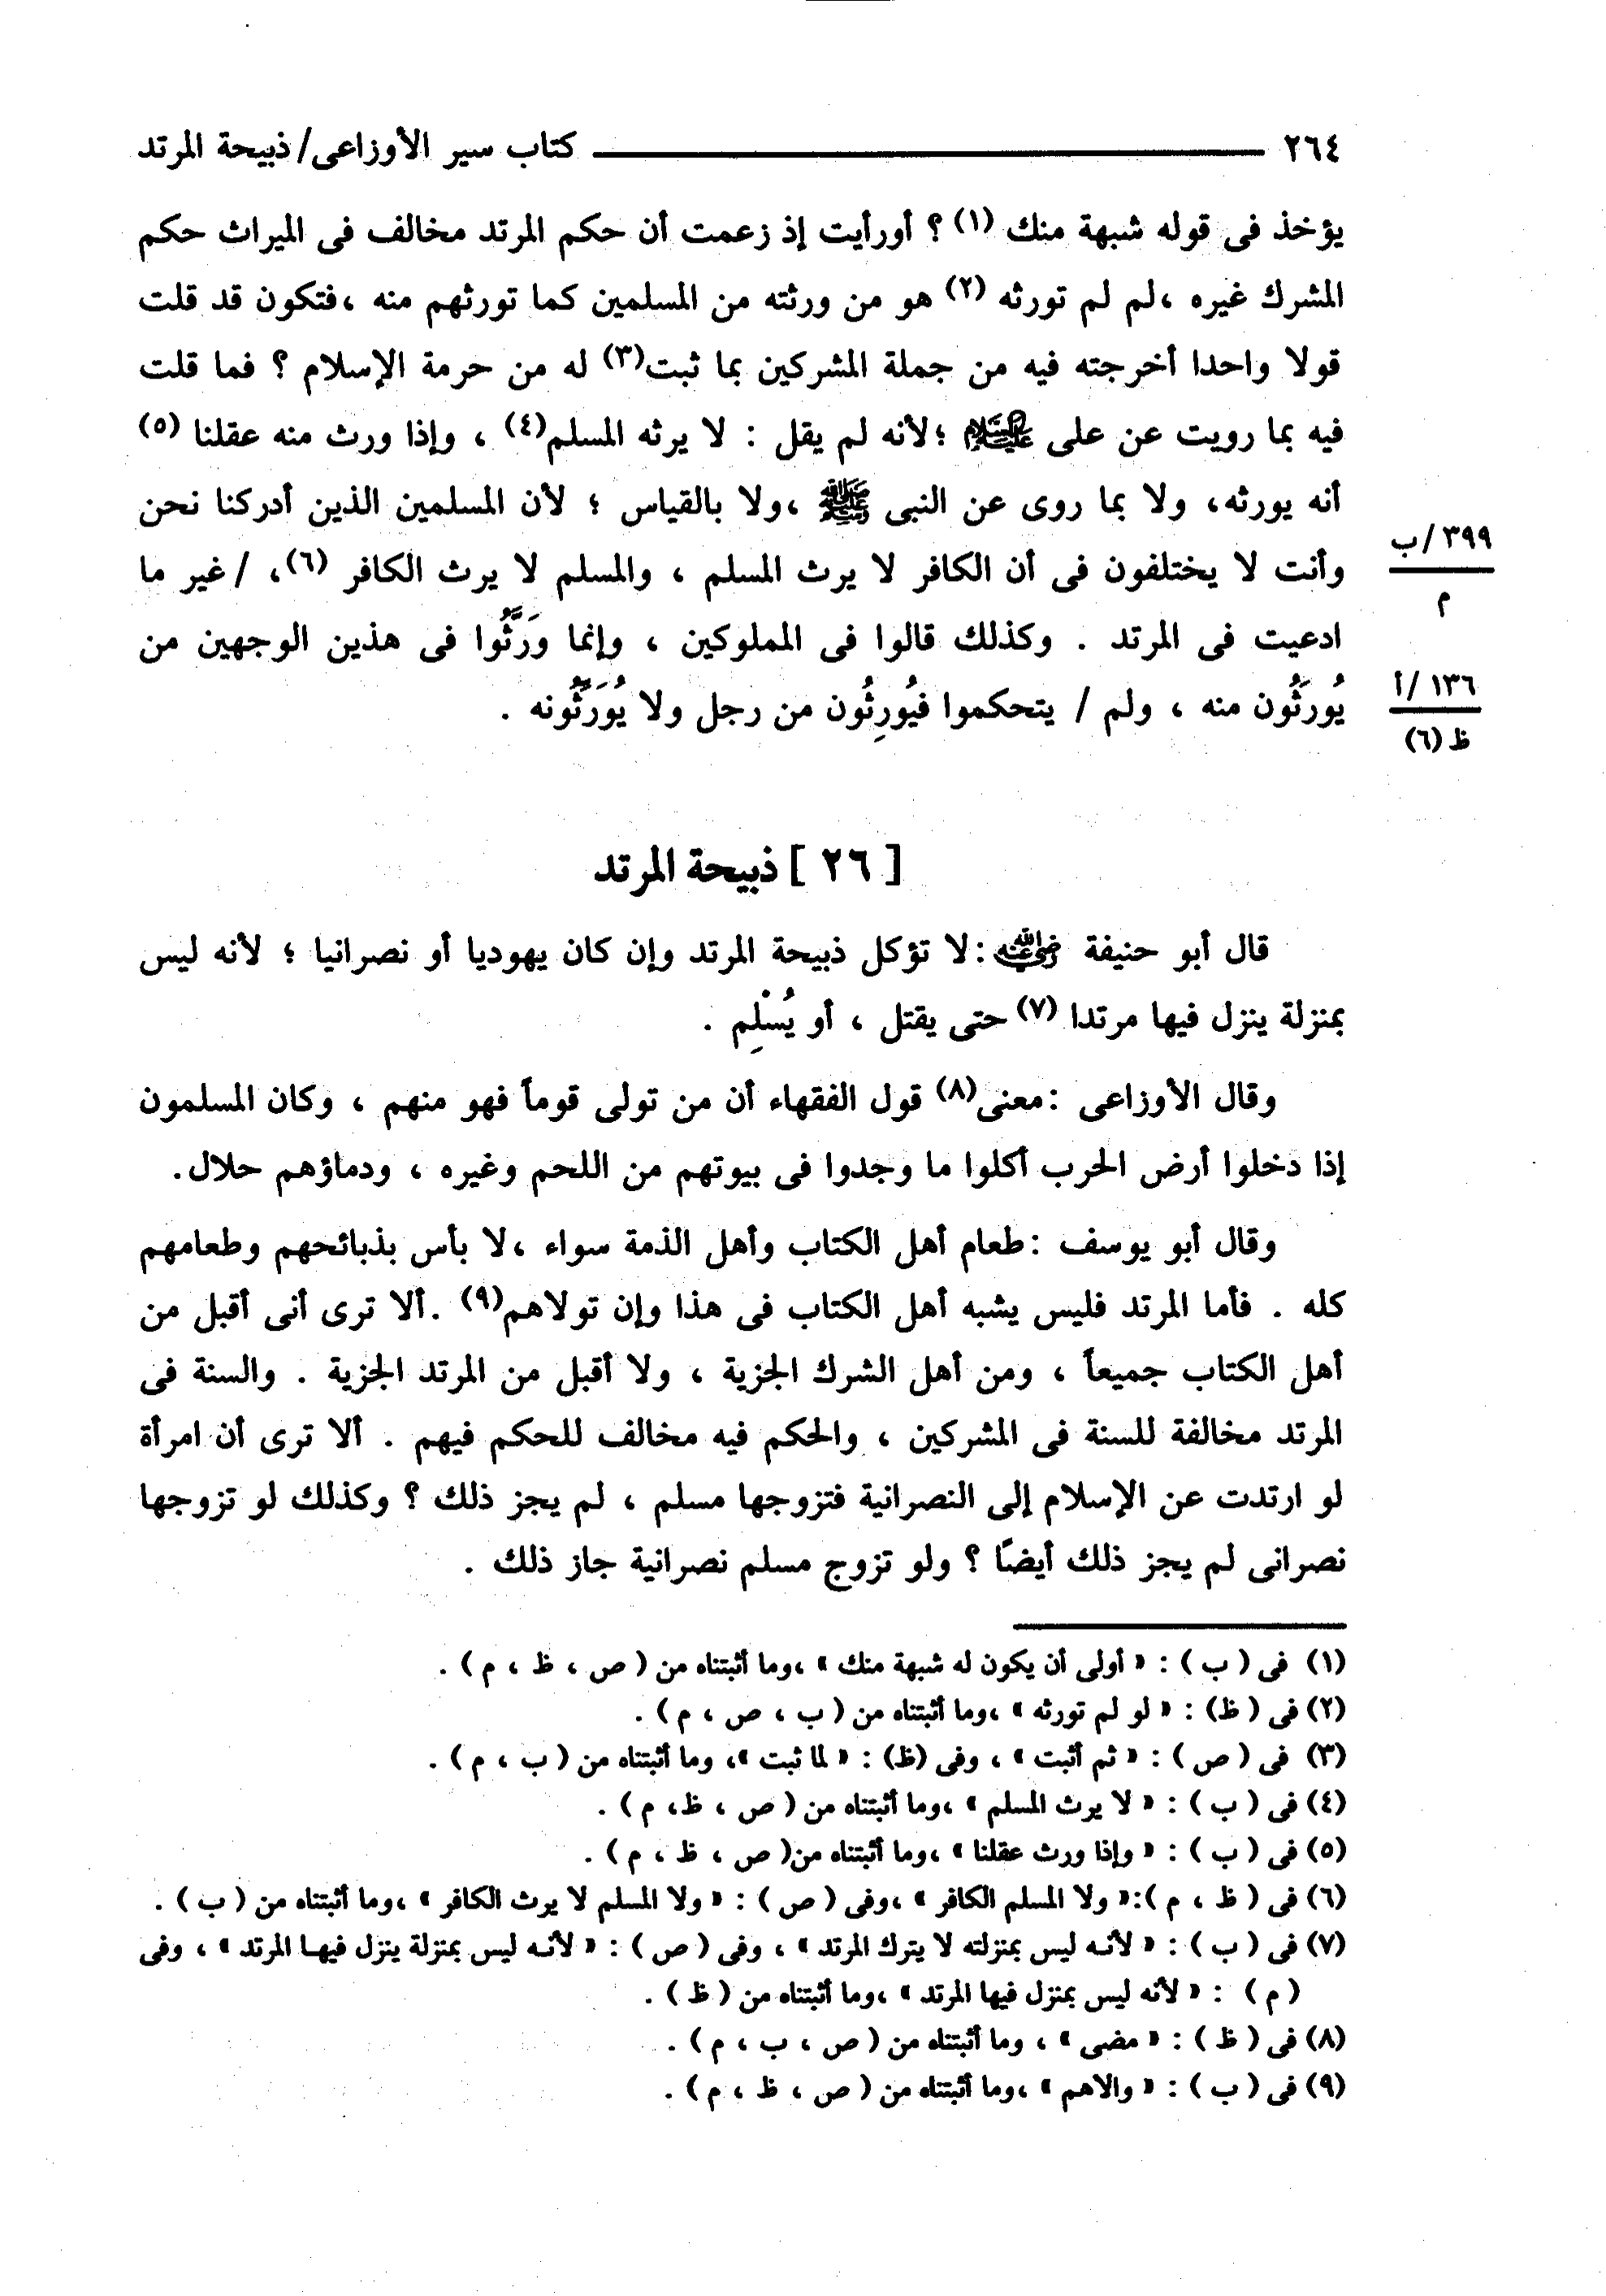 ٢٦٤ كتاب سير الأوزاعى/ ذبيحة المرتد
يؤخذ فى قوله شبهة منك (١) ؟ أورأيت إذ زعمت أن حكم المرتد مخالف فى الميراث حكم
المشرك غيره ،لم لم تورثه (٢) هو من ورثته من المسلمين كما تورثهم منه ،فتكون قد قلت
قولا واحدا أخرجته فيه من جملة المشركين بما ثبت(٣) له من حرمة الإسلام ؟ فما قلت
فيه بما رويت عن على عليه السلام ؛لأنه لم يقل : لا يرثه المسلم(٤) ، وإذا ورث منه عقلنا (٥)
أنه يورثه، ولا بما روى عن النبى ﷺ ،ولا بالقياس ؛ لأن المسلمين الذين أدركنا نحن
٣٩٩/ب
وأنت لا يختلفون فى أن الكافر لا يرث المسلم ، والمسلم لا يرث الكافر (٦)، / غير ما
م
ادعيت فى المرتد . وكذلك قالوا فى المملوكين ، وإنما وَرَّثُوا فى هذين الوجهين من
١٣٦/أ
يُورَثُون منه ، ولم / يتحكموا فيُورِثُون من رجل ولا يُوَرِّثُونه .
ظ (٦)
[ ٢٦ ] ذبيحة المرتد
قال أبو حنيفة رضي الله عنه :لا تؤكل ذبيحة المرتد وإن كان يهوديا أو نصرانيا ؛ لأنه ليس
بمنزلة ينزل فيها مرتدا (٧) حتى يقتل ، أو يُسْلِم .
وقال الأوزاعى :معنى(٨) قول الفقهاء أن من تولى قوماً فهو منهم ، وكان المسلمون
إذا دخلوا أرض الحرب أكلوا ما وجدوا فى بيوتهم من اللحم وغيره ، ودماؤهم حلال.
وقال أبو يوسف :طعام أهل الكتاب وأهل الذمة سواء ،لا بأس بذبائحهم وطعامهم
كله . فأما المرتد فليس يشبه أهل الكتاب فى هذا وإن تولاهم(٩) .ألا ترى أنى أقبل من
أهل الكتاب جميعاً ، ومن أهل الشرك الجزية ، ولا أقبل من المرتد الجزية . والسنة فى
المرتد مخالفة للسنة فى المشركين ، والحكم فيه مخالف للحكم فيهم . ألا ترى أن امرأة
لو ارتدت عن الإسلام إلى النصرانية فتزوجها مسلم ، لم يجز ذلك ؟ وكذلك لو تزوجها
نصرانى لم يجز ذلك أيضًا ؟ ولو تزوج مسلم نصرانية جاز ذلك .
(١) فى ( ب ) : « أولى أن يكون له شبهة منك » ،وما أثبتناه من ( ص ، ظ ، م ) .
(٢) فى ( ظ) : « لو لم تورثه » ،وما أثبتناه من ( ب ، ص ، م ) .
(٣) فى ( ص ) : « ثم أثبت » ، وفى (ظ) : « لما ثبت »، وما أثبتناه من ( ب ، م ) .
(٤) فى ( ب ) : « لا يرث المسلم » ،وما أثبتناه من ( ص ، ظ، م ) .
(٥) فى ( ب ) : « وإذا ورث عقلنا » ،وما أثبتناه من( ص ، ظ ، م ) .
(٦) فى ( ظ ، م ):« ولا المسلم الكافر » ،وفى ( ص ) : « ولا المسلم لا يرث الكافر » ،وما أثبتناه من ( ب ) .
(٧) فى ( ب ) : « لأنه ليس بمنزلته لا يترك المرتد » ، وفى ( ص ) : « لأنه ليس بمنزلة ينزل فيها المرتد » ، وفى
( م ) : « لأنه ليس بمنزل فيها المرتد » ،وما أثبتناه من ( ظ ) .
(٨) فى ( ظ ) : « مضى » ، وما أثبتناه من ( ص ، ب ، م ) .
(٩) فى ( ب ) : « والاهم » ،وما أثبتناه من ( ص ، ظ ، م ) .